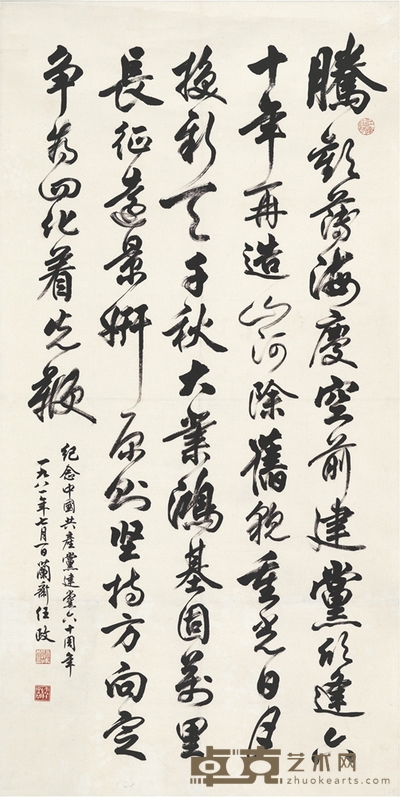 騰歡薄海慶空前建黨欣逢六
十年再造山河除舊貌重光日月
換新天千秋大業鴻基固萬里
長征遠景妍原則堅持方向定
争為四化着先鞭
紀念中國共產黨建黨六十周年
一九八一年七月一日蘭齋任政
卓克艺术网
zhuokearts.com